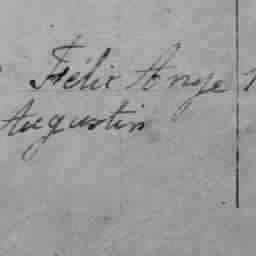 Félix Ange
Augustin